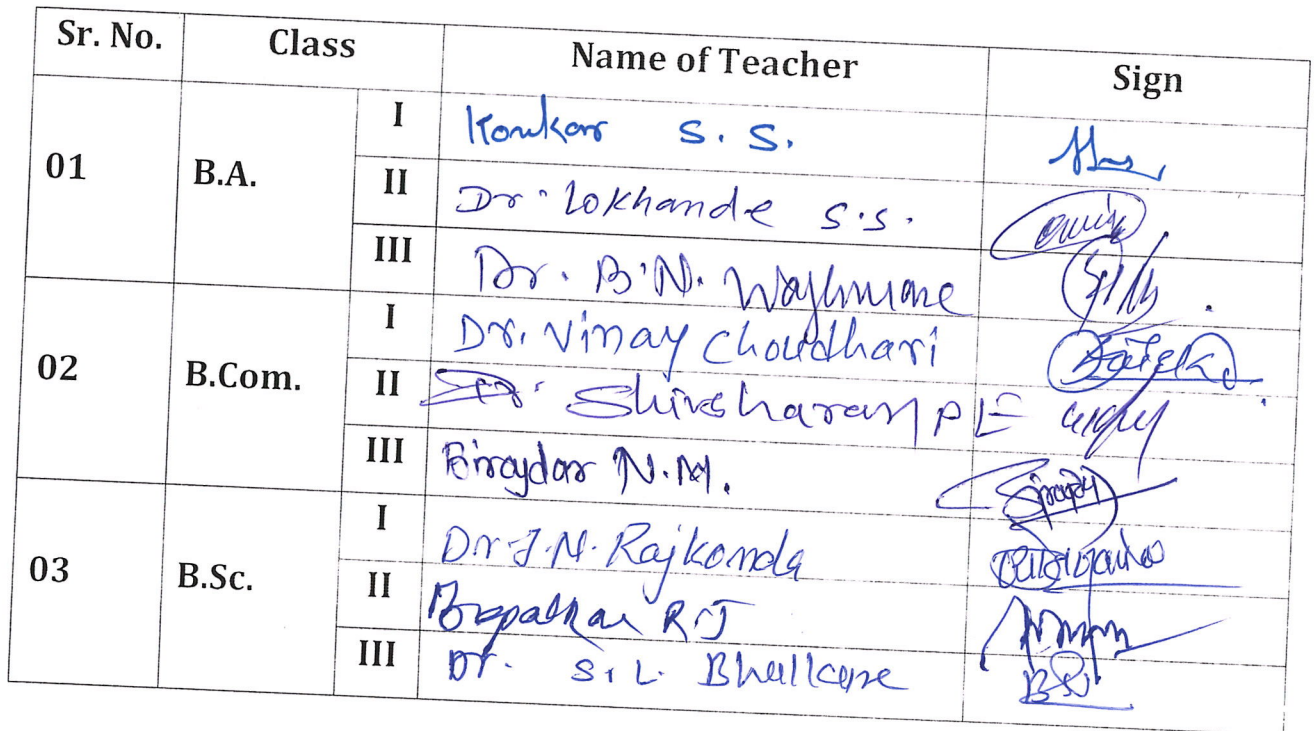 Sr. No. Class Name of Teacher Sign
01 B.A. I Konkar S. S.
II Dr. Lokhande S.S.
III Dr. B.N. Waghmare
02 B.Com. I Dr. Vinay Choudhari
II Shivsharan P E
III Biraydar N.M.
03 B.Sc. I Dr. J.N. Rajkonda
II R.J
III Dr. S.L.